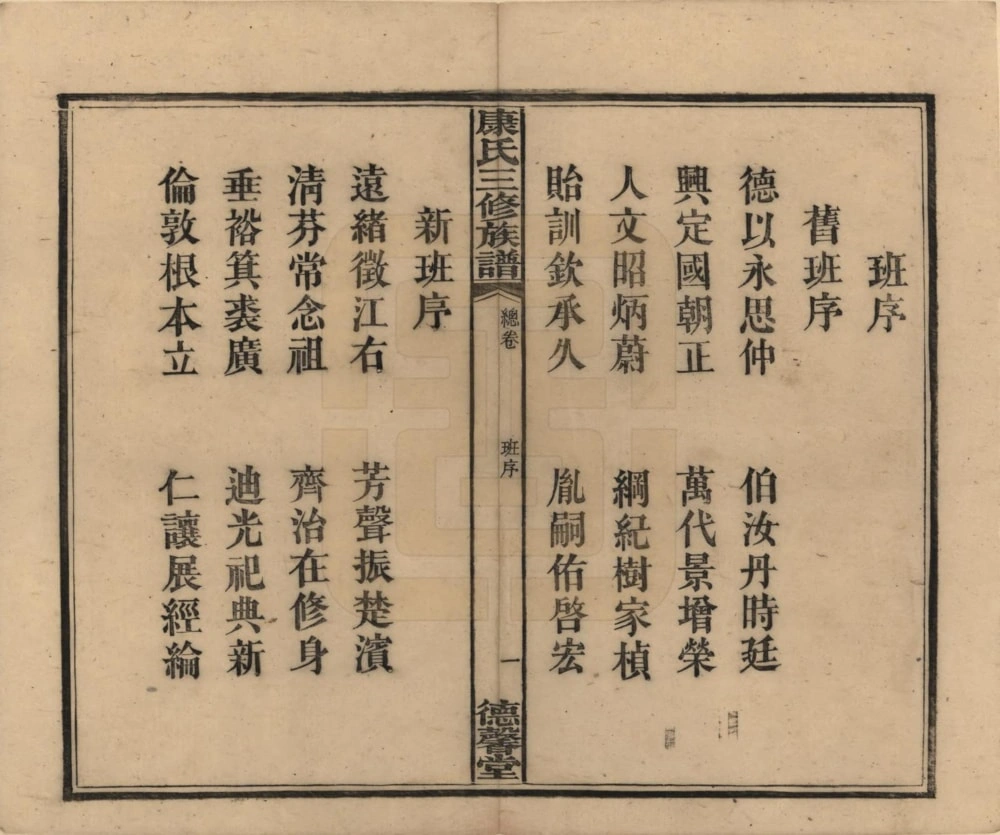 班序
舊班序
德以永思仲 伯汝丹時廷
興定國朝正 萬代景增榮
人文昭炳蔚 綱紀樹家楨
貽訓欽承久 胤嗣佑啓宏
康氏三修族譜 總卷 班序 一 德馨堂
新班序
遠緒徵江右 芳聲振楚濱
清芬常念祖 齊治在修身
垂裕箕裘廣 迪光祀典新
倫敦根本立 仁讓展經綸